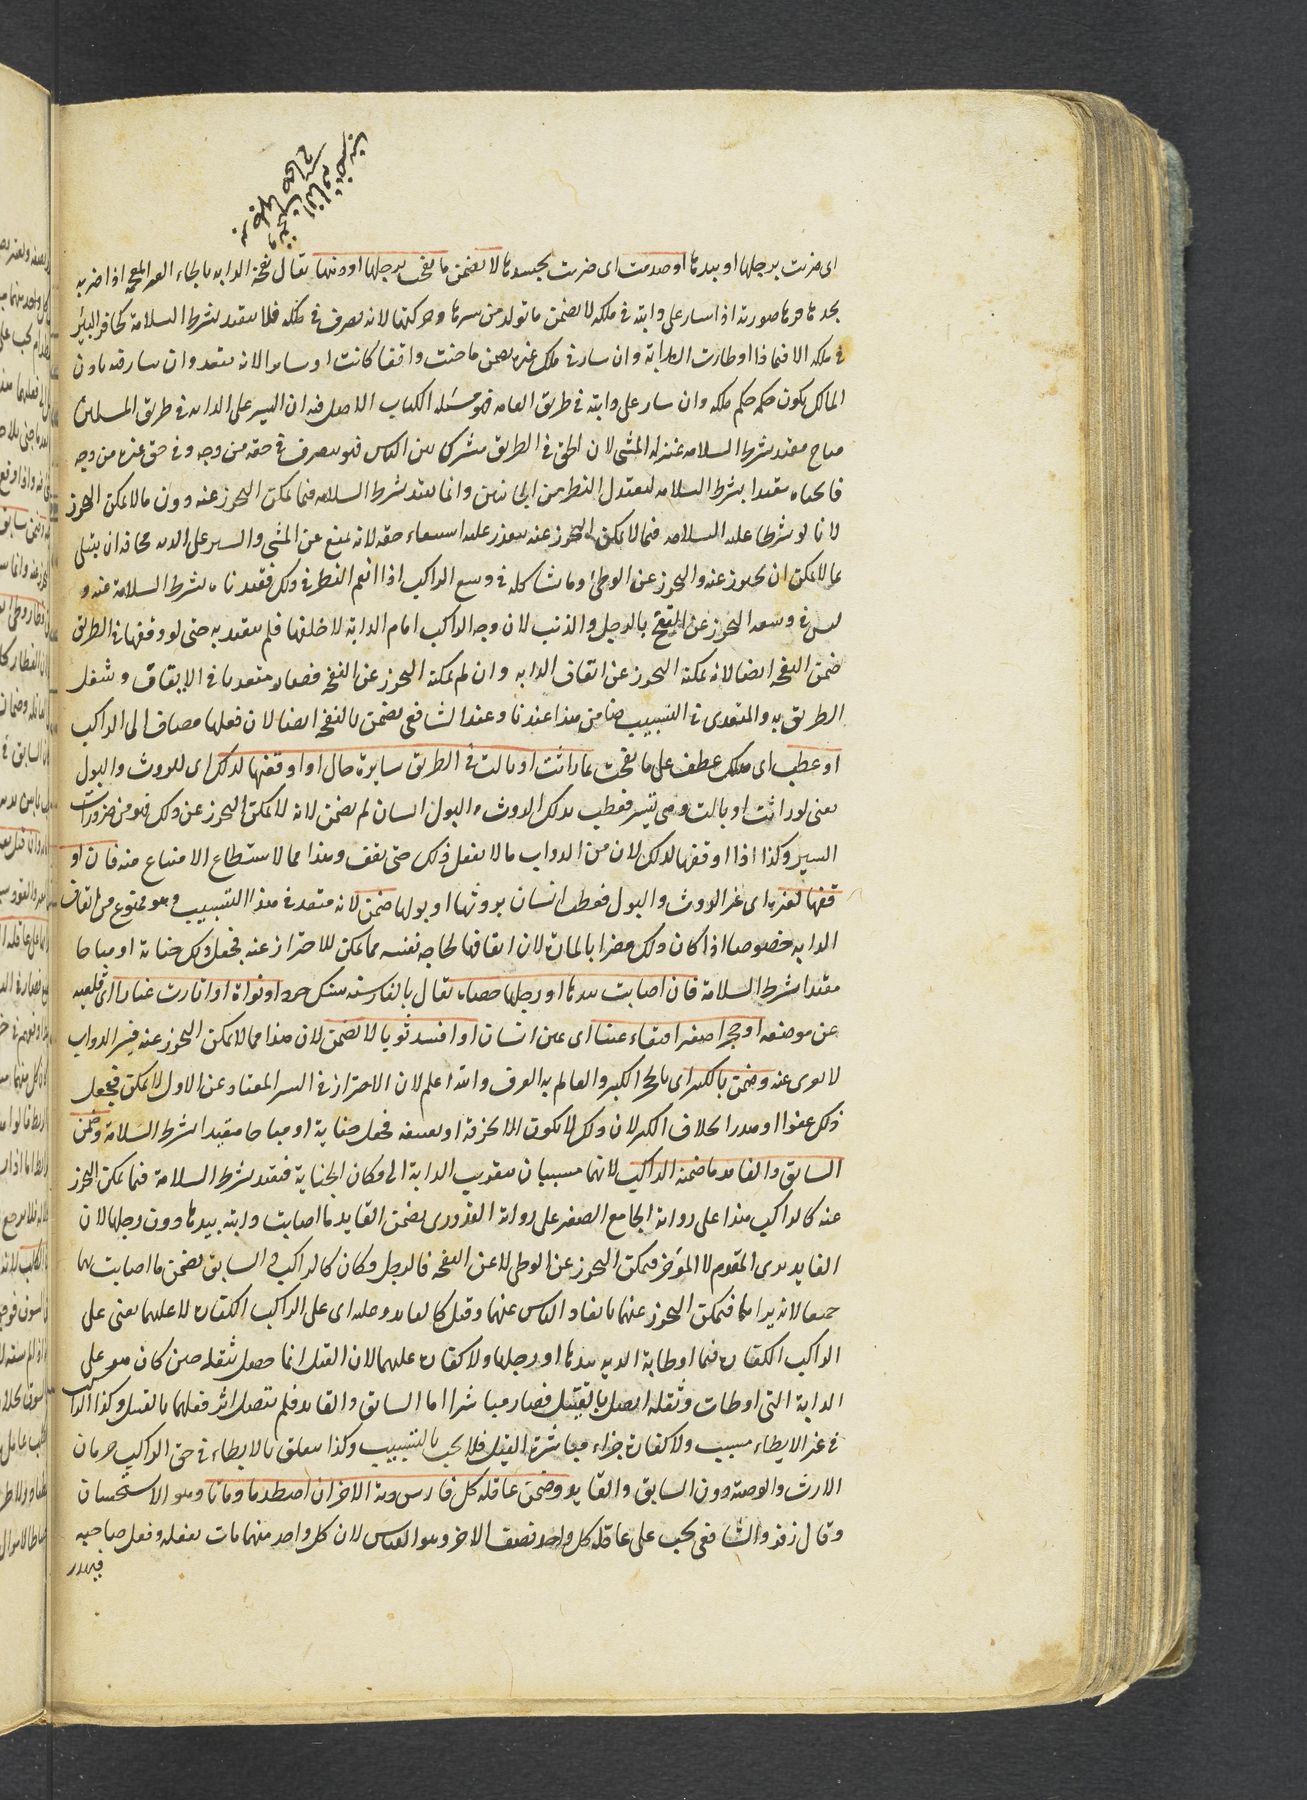 اى ضربت برجلها او بيدها او صدمت اى ضربت بجسدها لا يضمن ما نفحت برجلها او ذنبها يقال نفحة الدابة بالحاء الغير المعجمة اذا ضربه
بحد حافرها صورته اذا سار على دابته فى ملكه لا يضمن ما تولد من سيرها وحركتها لانه تصرف فى ملكه فلا يتقيد بشرط السلامة كحافر البئر
فى ملكه الا فيما اذا اوطأت الدابة وان سار فى ملك غيره يضمن ما جنت واقفا كانت او سايرا لانه متعد وان سار فيه باذن
المالك يكون حكمه حكم ملكه وان سار على دابته فى طريق العامة فهو مسئلة الكتاب الاصل فيه ان السير على الدابة فى طريق المسلمين
مباح مقيد بشرط السلامة بمنزلة المشى لان الحق فى الطريق مشترك بين الناس فهو يتصرف فى حقه من وجه وفى حق غيره من وجه
فابحناه مقيدا بشرط السلامة ليعتدل النظر من الجانبين وانما يتقيد بشرط السلامة فيما يمكن التحرز عنه دون ما لا يمكن التحرز
لانا لو شرطنا عليه السلامة فيما لا يمكن التحرز عنه يتعذر عليه استيفاء حقه لانه يمتنع عن المشى والسير على الدابة مخافة ان يبتلى
بما لا يمكن ان يحترز عنه والتحرز عن الوطئ وما شاكله فى وسع الراكب اذا انعم النظر فى ذلك فقيدناه بشرط السلامة عنه و
ليس فى وسعه التحرز عن النفح بالرجل والذنب لان وجه الراكب امام الدابة لا خلفها فلم يتقيد به حتى لو وقفها فى الطريق
ضمن النفحة ايضا لانه يمكنه التحرز عن ايقاف الدابة وان لم يمكنه التحرز عن النفح فصار متعديا فى الايقاف وشغل
الطريق به والمتعدى فى التسبيب ضامن هذا عندنا وعند الشافعى يضمن بالنفح ايضا لان فعلها مضاف الى الراكب
او عطب اى هلك عطف على ما نفحت بما راثت او بالت فى الطريق سايرة حال او اوقفها لذلك اى للروث والبول
يعنى لو راثت او بالت وهى تسير فعطب بذلك الروث والبول انسان لم يضمن لانه لا يمكن التحرز عن ذلك فهو من ضرورات
السير وكذا اذا اوقفها لذلك لان من الدواب ما لا يفعل ذلك حتى يقف وهذا مما لا يستطاع الامتناع منه فان او
قفها لغيره اى غير الروث والبول فعطب انسان بروثها او بولها ضمن لانه متعد فى هذا التسبيب وهو ممنوع من ايقاف
الدابة خصوصا اذا كان ذلك مضرا بالمارة لان ايقافها لحاجة نفسه مما يمكن الاحتراز عنه فجعل ذلك جناية او مباحا
مقيدا بشرط السلامة فان اصابت بيدها او رجلها حصاة يقال بالفارسية سنك خرد او نواة او اثارت غبارا اى قلعته
عن موضعه او حجرا صغيرا ففقاء عينا اى عين انسان او افسد ثوبا لا يضمن لان هذا مما لا يمكن التحرز عنه فسير الدواب
لا يعرى عنه وضمن بالكبير اى بالحجر الكبير والعالم به العرف والله اعلم لان الاحتراز فى السير المعتاد عن الاول لا يمكن فيجعل
ذلك عفوا وهدرا بخلاف الكبير لان ذلك لا يكون الا لخرقه او تعسفه فجعل جناية او مباحا مقيدا بشرط السلامة وضمن
السايق والقايد ما ضمنه الراكب لانهما مسببان بتقريب الدابة الى مكان الجناية فيتقيد بشرط السلامة فيما يمكن التحرز
عنه كالراكب هذا على رواية الجامع الصغير على رواية القدورى يضمن القايد ما اصابت دابته بيدها دون رجلها لان
القايد يرى المقدم لا المؤخر فيمكن التحرز عن الوطئ لا عن النفحة فالرجل وكان كالراكب والسايق يضمن ما اصابت بهما
جميعا لانه يراهما فيمكن التحرز عنهما بابعاد الناس عنهما وقيل كالقايد وعليه اى على الراكب الكفارة لا عليهما يعنى على
الراكب الكفارة فيما اوطأته الدابة بيدها او رجلها ولا كفارة عليهما لان القتل انما حصل بثقله حين كان هو على
الدابة التى اوطأت وثقله اتصل بالقتيل فصار مباشرا اما السايق والقايد فلم يتصل اثر فعلهما بالقتيل وكذا الراكب
فى غير الايطاء مسبب ولا كفارة جزاء مباشرة القتل فلا يجب بالتسبيب وكذا يتعلق بالايطاء فى حق الراكب حرمان
الارث والوصية دون السايق والقايد وضمن عاقلة كل فارس دية الاخر ان اصطدما وماتا وهو الاستحسان
وقال زفر والشافعى يجب على عاقلة كل واحد نصف الاخر وهو القياس لان كل واحد منهما مات بفعله وفعل صاحبه
فيهدر